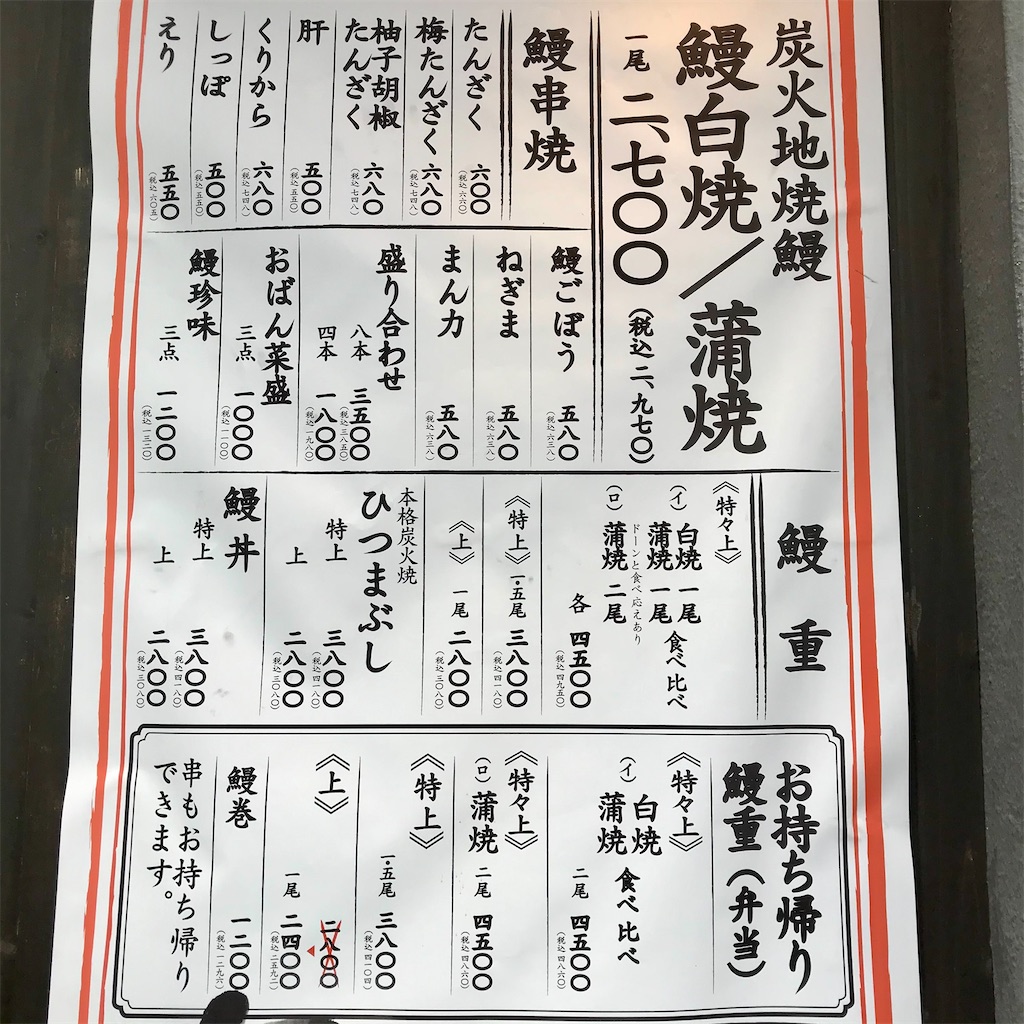 炭火地焼鰻
鰻白焼／蒲焼
一尾 二、七〇〇（税込 二、九七〇）
鰻串焼
たんざく 六〇〇（税込 六六〇）
梅たんざく 六八〇（税込 七四八）
柚子胡椒
たんざく 六八〇（税込 七四八）
肝 五〇〇（税込 五五〇）
くりから 六八〇（税込 七四八）
しっぽ 五〇〇（税込 五五〇）
えり 五五〇（税込 六〇五）
鰻ごぼう 五八〇（税込 六三八）
ねぎま 五八〇（税込 六三八）
まん力 五八〇（税込 六三八）
盛り合わせ
八本 三五〇〇（税込 三八五〇）
四本 一八〇〇（税込 一九八〇）
おばん菜盛
三点 一〇〇〇（税込 一一〇〇）
鰻珍味
三点 一二〇〇（税込 一三二〇）
鰻重
《特々上》
（イ）白焼 一尾
蒲焼 一尾 食べ比べ
ドーンと食べ応えあり
（ロ）蒲焼 二尾
各 四五〇〇（税込 四九五〇）
《特上》一・五尾 三八〇〇（税込 四一八〇）
《上》 一尾 二八〇〇（税込 三〇八〇）
本格炭火焼
ひつまぶし
特上 三八〇〇（税込 四一八〇）
上 二八〇〇（税込 三〇八〇）
鰻丼
特上 三八〇〇（税込 四一八〇）
上 二八〇〇（税込 三〇八〇）
お持ち帰り
鰻重（弁当）
《特々上》
（イ）白焼
蒲焼 食べ比べ
二尾 四五〇〇（税込 四八六〇）
《特々上》
（ロ）蒲焼 二尾 四五〇〇（税込 四八六〇）
《特上》
一・五尾 三八〇〇（税込 四一〇四）
《上》 二八〇〇
一尾 二四〇〇（税込 二五九二）
鰻巻 一二〇〇（税込 一二九六）
串もお持ち帰り
できます。